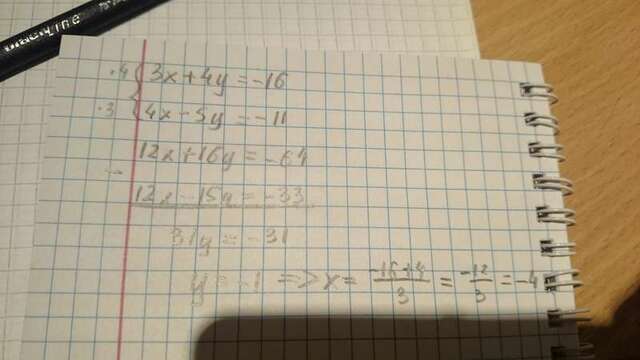 ·4 { 3x + 4y = -16
·3 { 4x - 5y = -11
12x + 16y = -64
-
12x - 15y = -33
31y = -31
y = -1 => x = \frac{-16+4}{3} = \frac{-12}{3} = -4